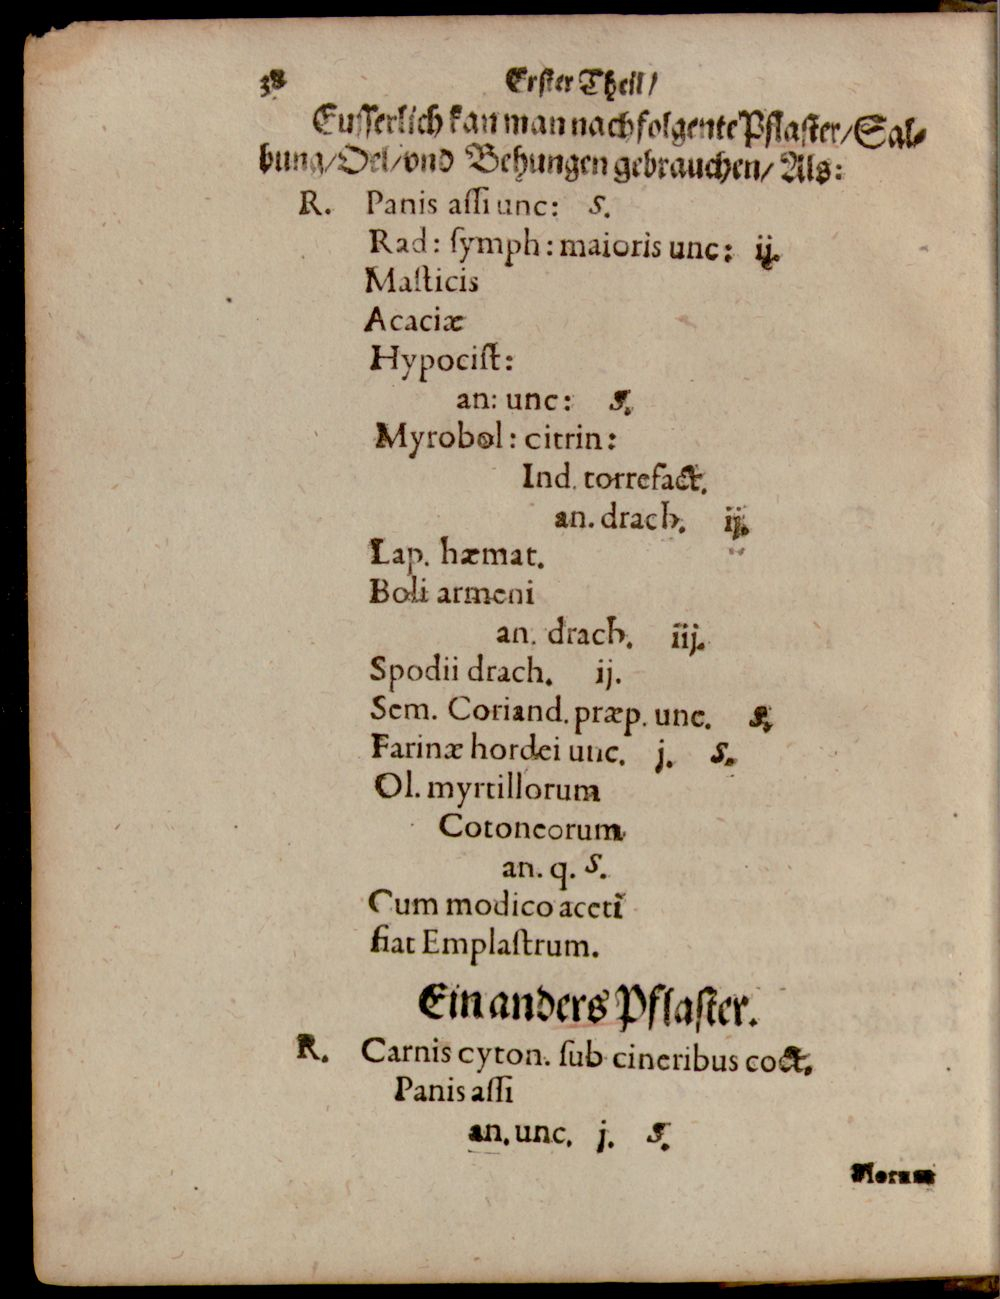 38 Erster Theil/
Eusserlich kan man nachfolgente Pflaster/Sal-
bung/Oel/vnd Behungen gebrauchen/ Als:
R. Panis assi unc: s.
Rad: symph: maioris unc: ij.
Masticis
Acaciæ
Hypocist:
an: unc: s.
Myrobol: citrin:
Ind. torrefact.
an. drach. ij.
Lap. hæmat.
Boli armeni
an. drach. iij.
Spodii drach. ij.
Sem. Coriand. præp. unc. s.
Farinæ hordei unc. j. s.
Ol. myrtillorum
Cotoneorum
an. q. s.
Cum modico aceti
fiat Emplastrum.
Ein anders Pflaster.
R. Carnis cyton. sub cineribus coct.
Panis assi
an. unc. j. s.